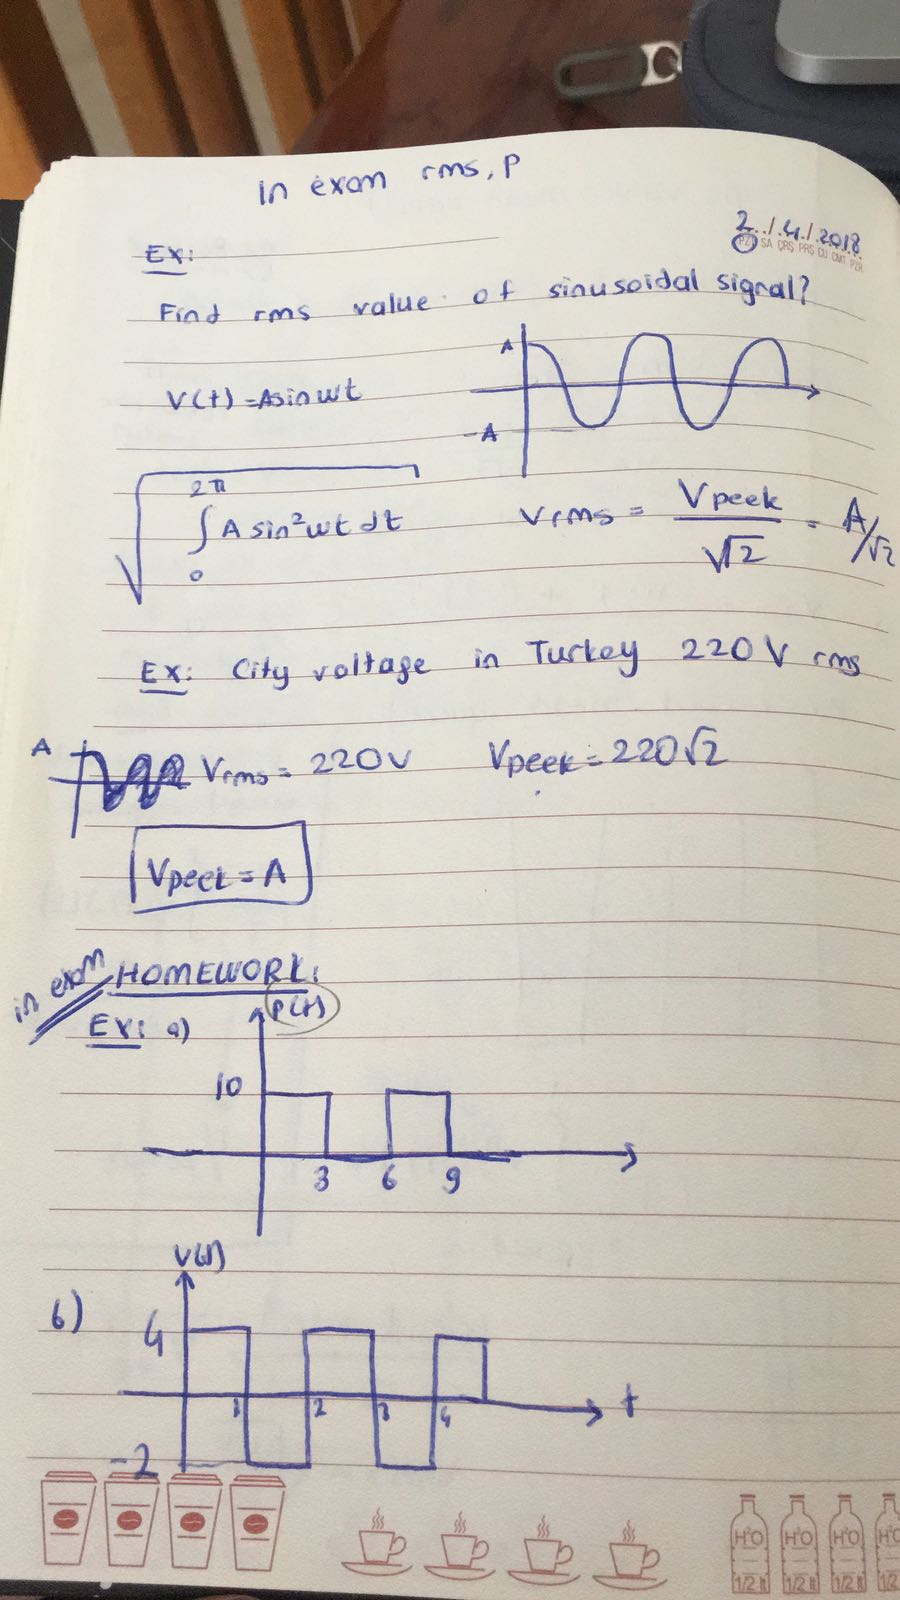 in exam rms, P
2../.4./.2018
PZT SA ÇRŞ PRŞ CU CMT PZR
Ex:
Find rms value of sinusoidal signal?
V(t) = Asin wt
A
-A
√ ∫ 2π 0 A sin² wt dt
Vrms = Vpeek / √2 = A/√2
Ex: City voltage in Turkey 220 V rms
A
Vrms = 220V Vpeek = 220√2
Vpeek = A
in exam
HOMEWORK:
Ex: a)
P(t)
10
3 6 9
V(t)
b)
4
1 2 3 4
t
-2
H²O H²O H²O H²O
1/2 lt 1/2 lt 1/2 lt 1/2 lt